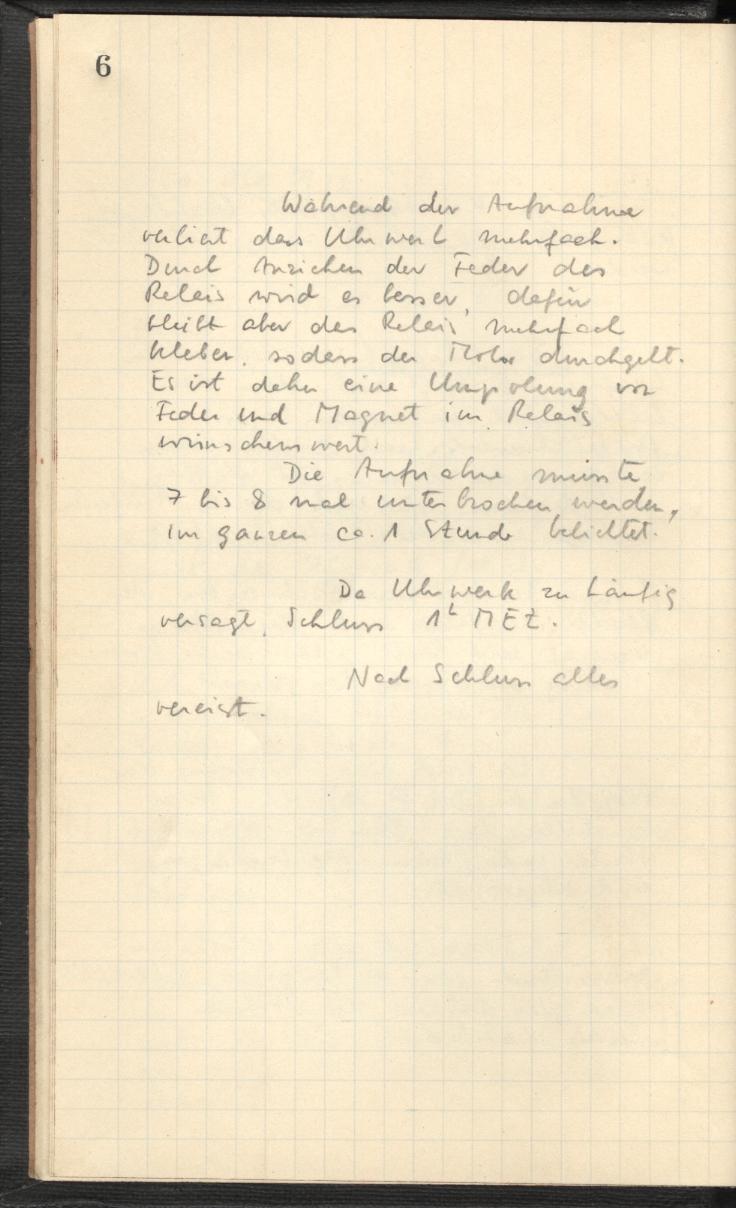 6
Während der Aufnahme
verliert das Uhrwerk mehrfach.
Durch Anziehen der Feder des
Relais wird es besser, dafür
bleibt aber das Relais mehrfach
kleben, sodass der Motor durchgeht.
Es ist daher eine Umpolung von
Feder und Magnet im Relais
wünschenswert.
Die Aufnahme musste
7 bis 8 mal unterbrochen werden,
im ganzen ca. 1 Stunde belichtet.
Da Uhrwerk zu häufig
versagt, Schluss 1h MEZ.
Nach Schluss alles
vereist.